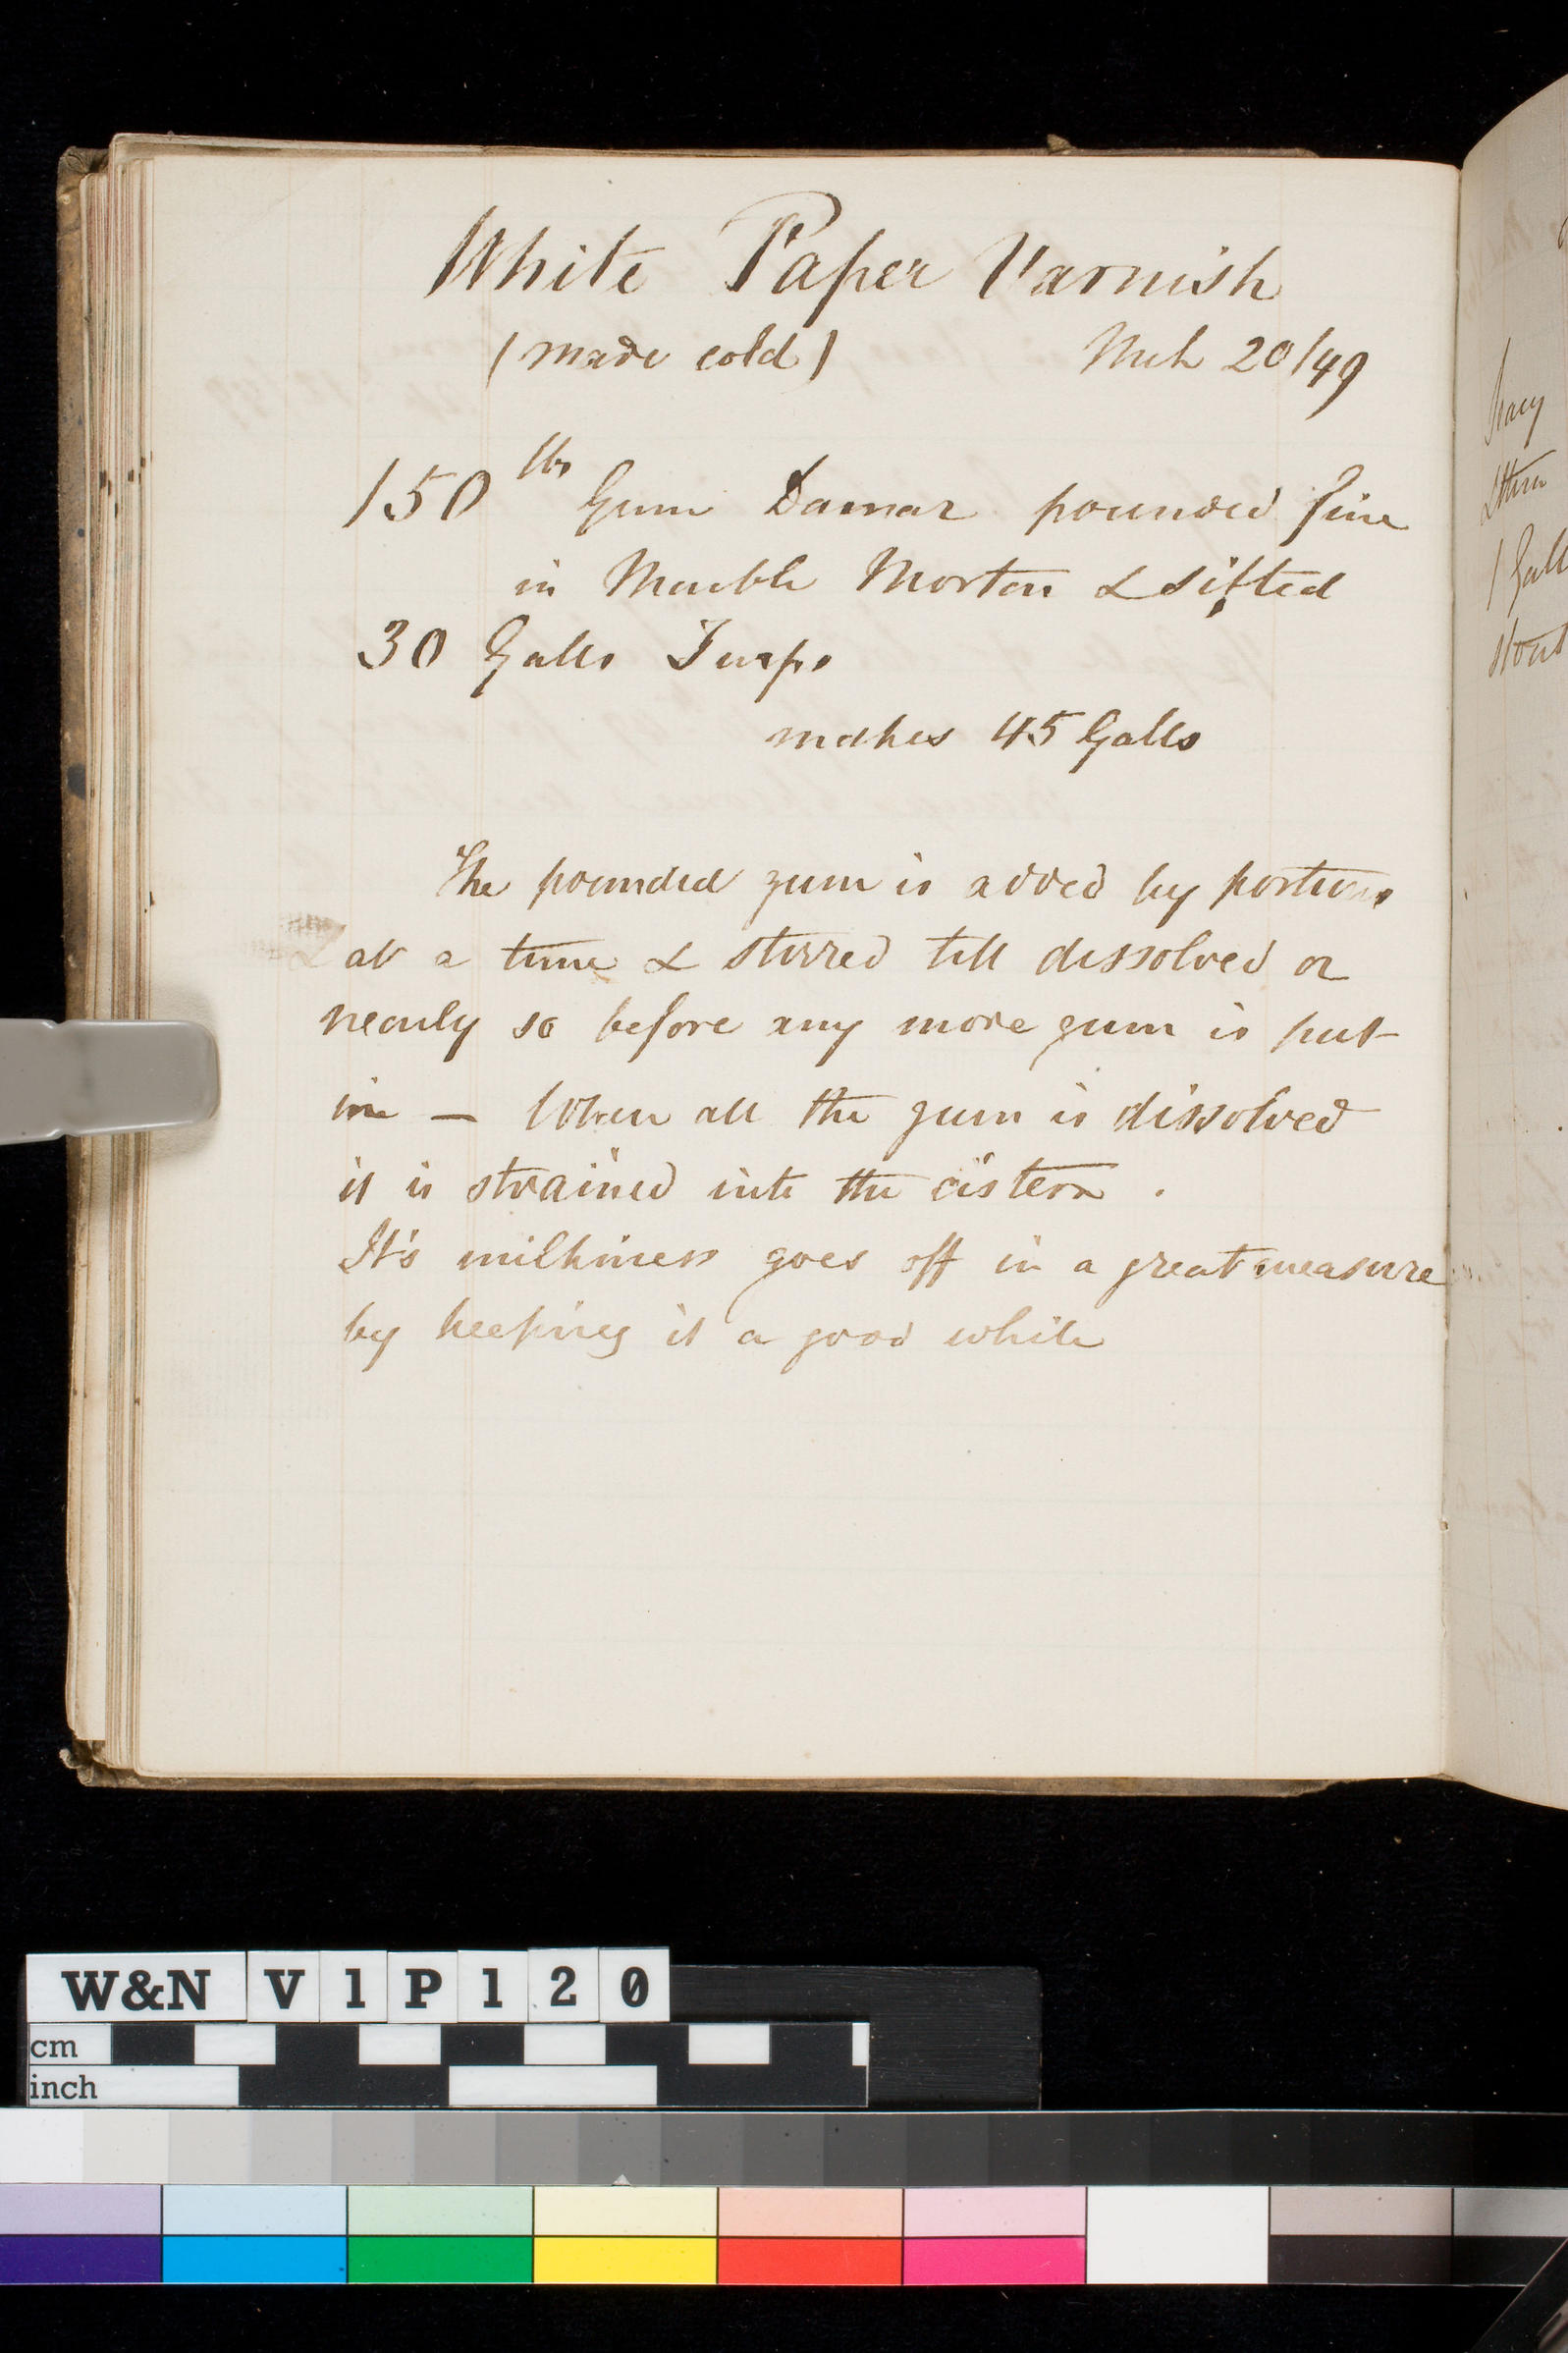 White Paper Varnish
(made cold) Mch 20/49
150 lbs Gum Damar pounded fine
in Marble Mortar & sifted
30 Galls Turps
makes 45 Galls
The pounded gum is added by portions
at a time & stirred till dissolved or
nearly so before any more gum is put
in — When all the gum is dissolved
it is strained into the cistern .
It's milkiness goes off in a great measure
by keeping it a good while
1 Gall
W&N V1P120
cm
inch